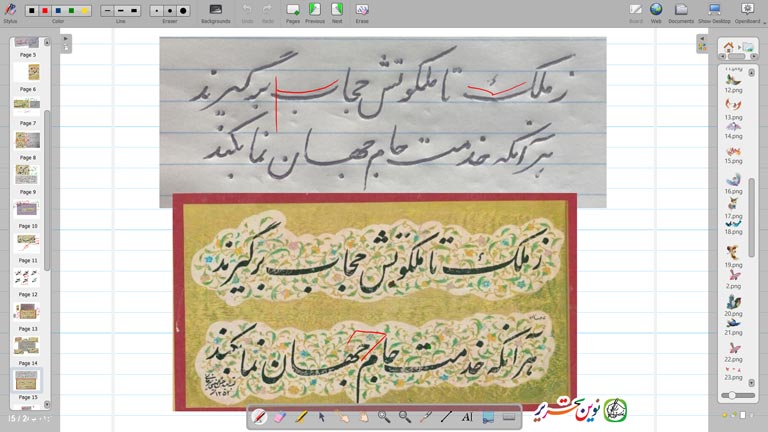 Stylus Color Line Eraser Backgrounds Undo Redo Pages Previous Next Erase Board Web Documents Show Desktop OpenBoard
Page 5
Page 6
Page 7
Page 8
Page 9
Page 10
Page 11
Page 12
Page 13
Page 14
Page 15
ز ملک تا ملکوتش حجاب برگیرند
هر آنکه خدمت جام جهان نما بکند
ز ملک تا ملکوتش حجاب برگیرند
هر آنکه خدمت جام جهان نما بکند
11.png
12.png
13.png
14.png
15.png
16.png
17.png
18.png
19.png
2.png
20.png
21.png
22.png
23.png
نوین تحریر